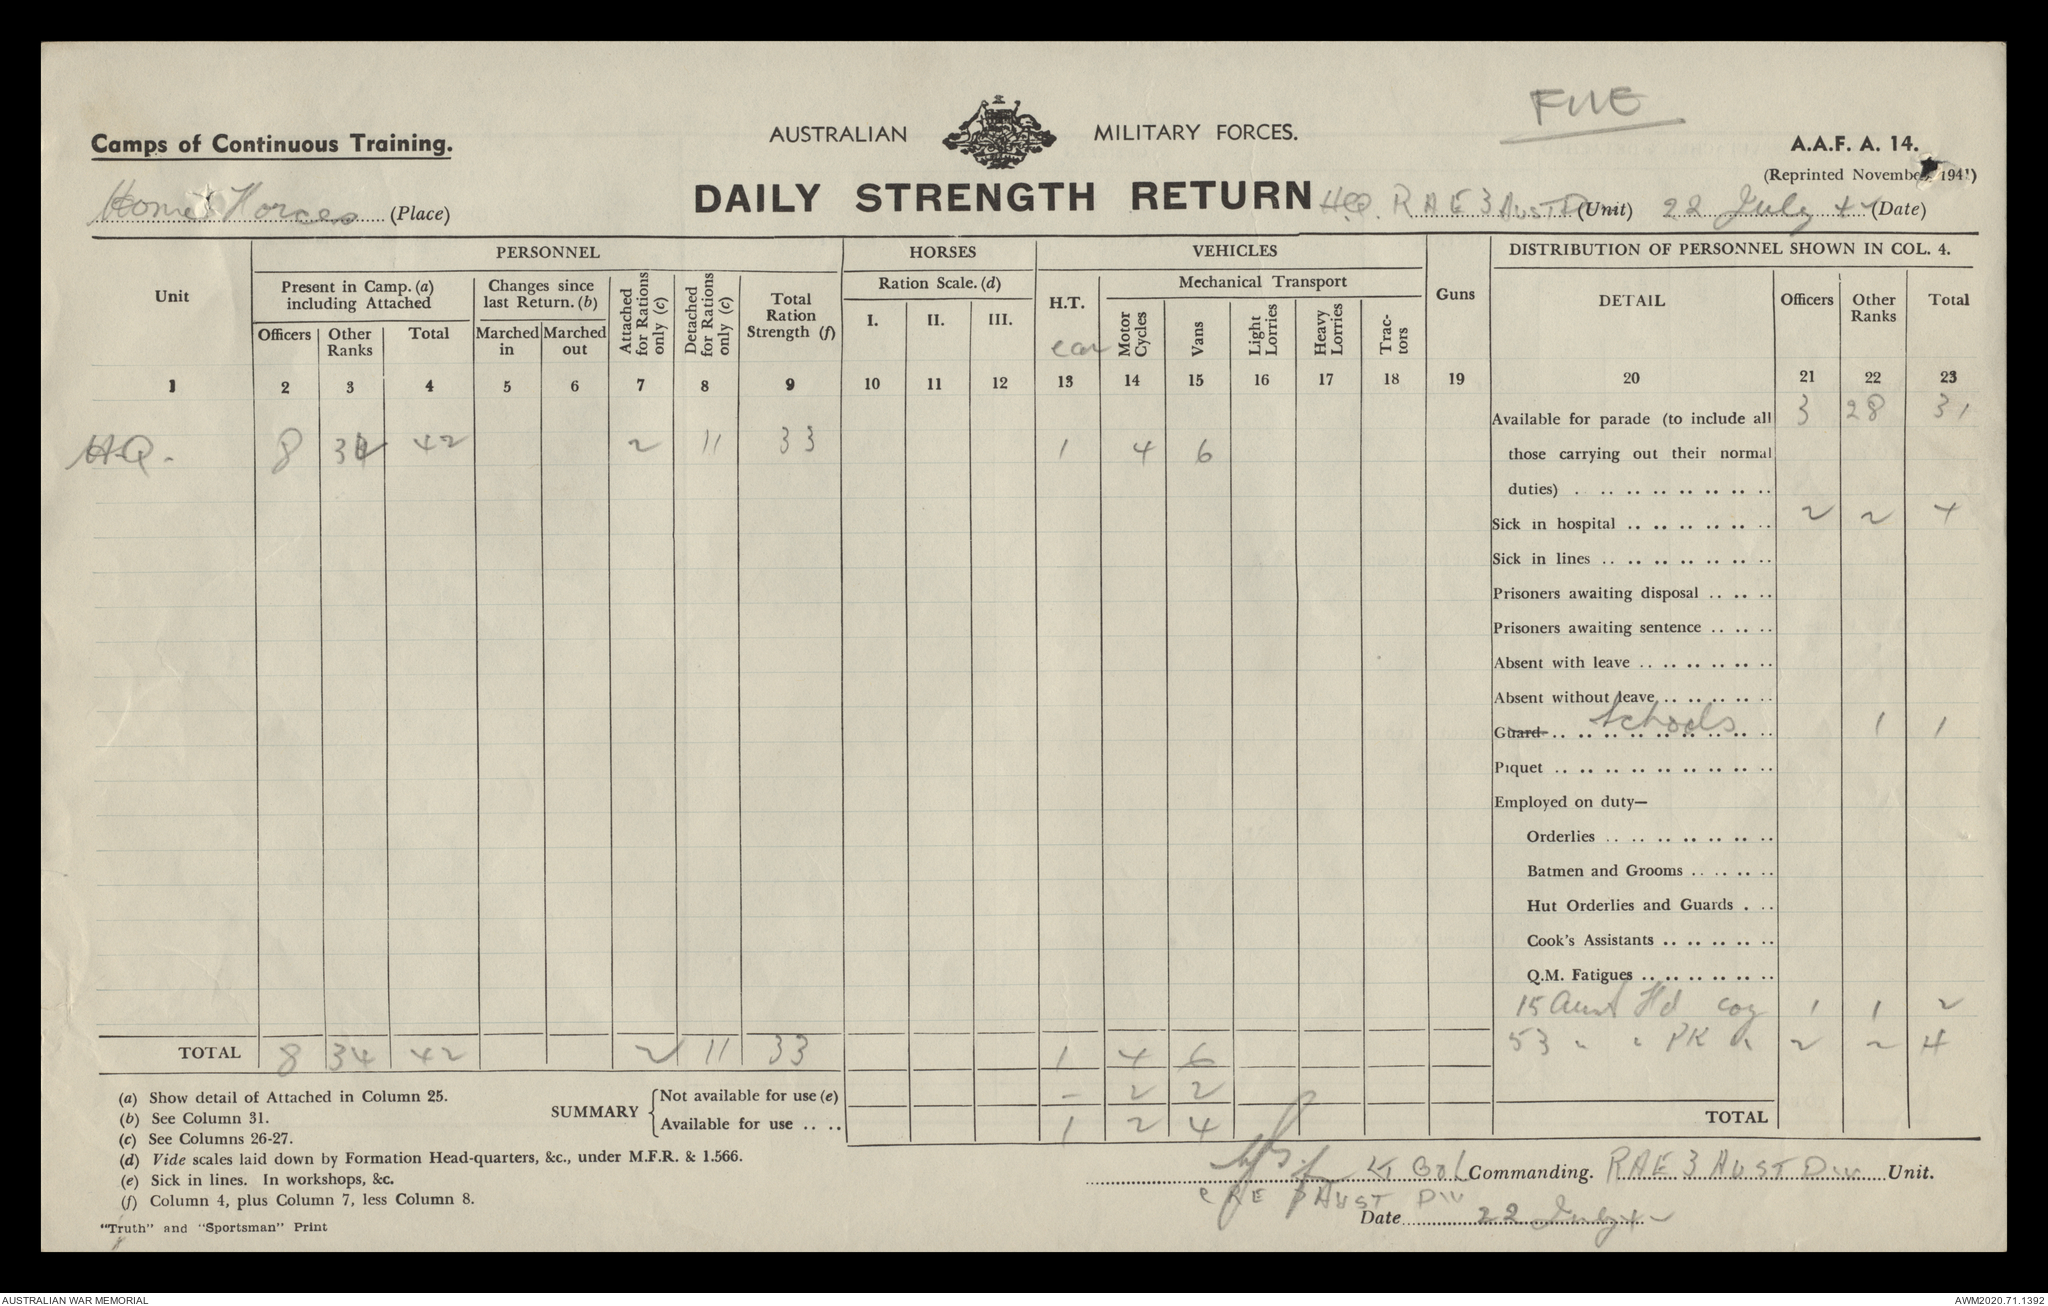 FILE
Camps of Continuous Training.
AUSTRALIAN MILITARY FORCES.
A.A.F. A. 14.
(Reprinted November, 1941)
Home Forces (Place)
DAILY STRENGTH RETURN HQ. RAE 3 AUST Div (Unit) 22 July 42 (Date)
PERSONNEL HORSES VEHICLES DISTRIBUTION OF PERSONNEL SHOWN IN COL. 4.
Unit Present in Camp. (a) including Attached Changes since last Return. (b) Attached for Rations only (c) Detached for Rations only (c) Total Ration Strength (f) Ration Scale. (d) H.T. Mechanical Transport Guns DETAIL Officers Other Ranks Total
Officers Other Ranks Total Marched in Marched out I. II. III. car Motor Cycles Vans Light Lorries Heavy Lorries Trac-tors
1 2 3 4 5 6 7 8 9 10 11 12 13 14 15 16 17 18 19 20 21 22 23
HQ. 8 34 42 2 11 33 1 4 6
Available for parade (to include all 3 28 31
those carrying out their normal
duties) . .. .. .. .. .. .. ..
Sick in hospital .. .. .. .. .. .. 2 2 4
Sick in lines .. .. .. .. .. .. ..
Prisoners awaiting disposal .. .. ..
Prisoners awaiting sentence .. .. ..
Absent with leave .. .. .. .. .. ..
Absent without leave .. .. .. .. ..
Guard .. .. .. .. .. .. .. .. .. Schools 1 1
Piquet .. .. .. .. .. .. .. .. ..
Employed on duty—
Orderlies .. .. .. .. .. .. ..
Batmen and Grooms .. .. .. ..
Hut Orderlies and Guards . ..
Cook's Assistants .. .. .. .. ..
Q.M. Fatigues .. .. .. .. .. ..
15 Aust Fd coy 1 1 2
53 " " PK " 2 2 4
TOTAL
TOTAL 8 34 42 2 11 33 1 4 6
SUMMARY
Not available for use (e) - 2 2
Available for use .. .. 1 2 4
(a) Show detail of Attached in Column 25.
(b) See Column 31.
(c) See Columns 26-27.
(d) Vide scales laid down by Formation Head-quarters, &c., under M.F.R. & 1.566.
(e) Sick in lines. In workshops, &c.
(f) Column 4, plus Column 7, less Column 8.
"Truth" and "Sportsman" Print
Lt Col Commanding. RAE 3 AUST Div Unit.
CRE 3 AUST DIV
Date 22 July 42
AUSTRALIAN WAR MEMORIAL
AWM2020.71.1392